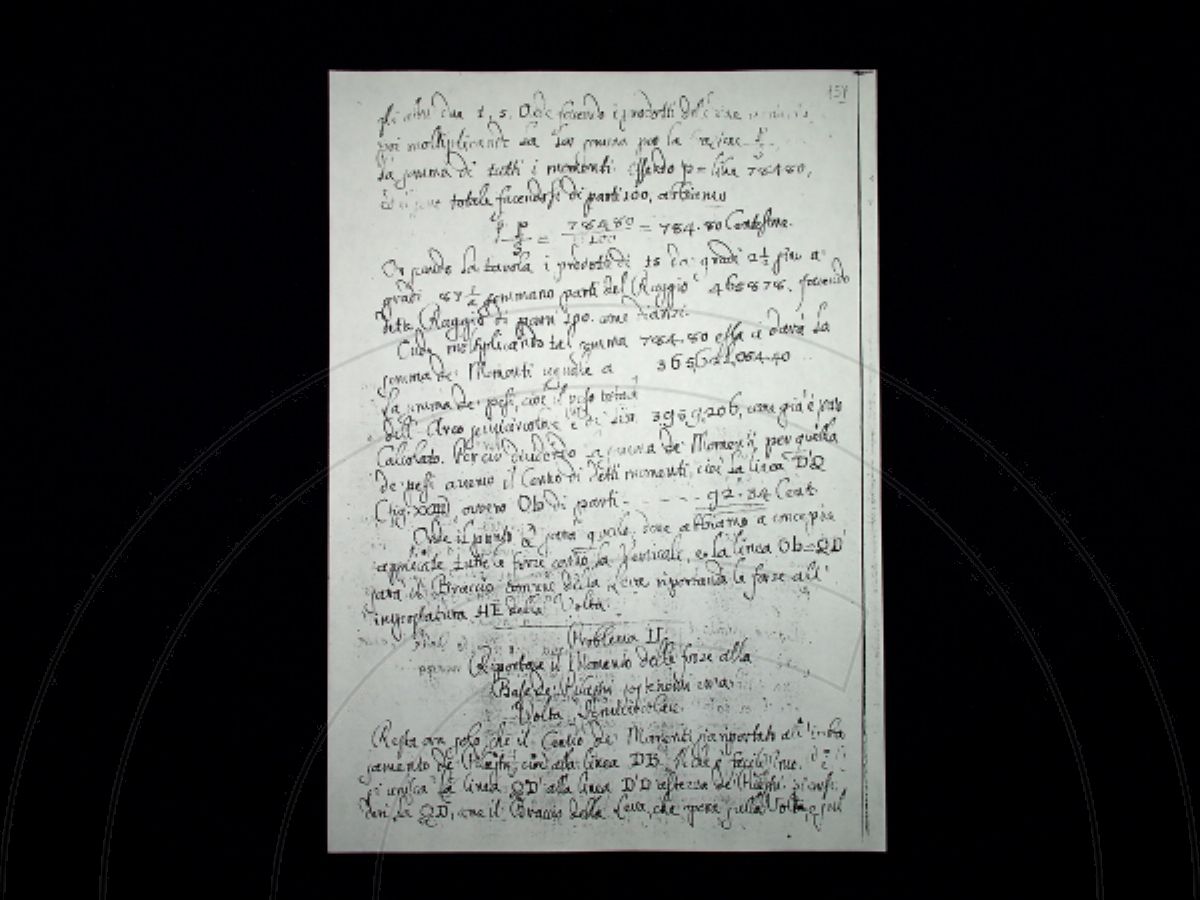 157
gli altri due 1, 5. Onde facendo i prodotti
poi moltiplicando la lor somma per la frazione
la somma di tutti i momenti. Essendo p = libre 78480,
totale facendosi di parti 100, abbiamo
p = 78480 = 784.80 Centesime.
100
Or secondo la tavola i prodotti di 15 da gradi 2 1/2 fino a
gradi 87 1/2 sommano parti del Raggio 465878. facendo
detto Raggio di parti 100. come dianzi.
Onde moltiplicando tal somma 784.80 essa ci darà la
somma de' Momenti uguale a 365,621,054.40
La somma de' pesi, cioè il peso total
dell' Arco semicircolare è di lib. 3959,206, come già è stato
Calcolato. Perciò dividendo la somma de' Momenti per quella
de' pesi avremo il Centro di detti momenti, cioè la linea D'Q
(fig. XXIII), ovvero Ob di parti - - - - - 92.34 Cent.
Onde il punto Q sarà quello, dove abbiamo a concepir
applicate tutte le forze contro la Verticale, e la linea Ob = QD'
sarà il Braccio comune della Leva riportando le forze all'
impostatura HE della Volta.
Problema II.
Riportare il Momento delle forze alla
Base de' Piedritti sostenenti una
Volta Semicircolare.
Resta ora solo, che il Centro de' Momenti sia riportato all' imba
samento de' Piedritti, cioè alla linea DB. Il che è facilissimo.
si unisca la linea QD' alla linea D'D altezza de' Piedritti, si consi
deri la QD, come il Braccio della Leva, che opera sulla Volta, e sul